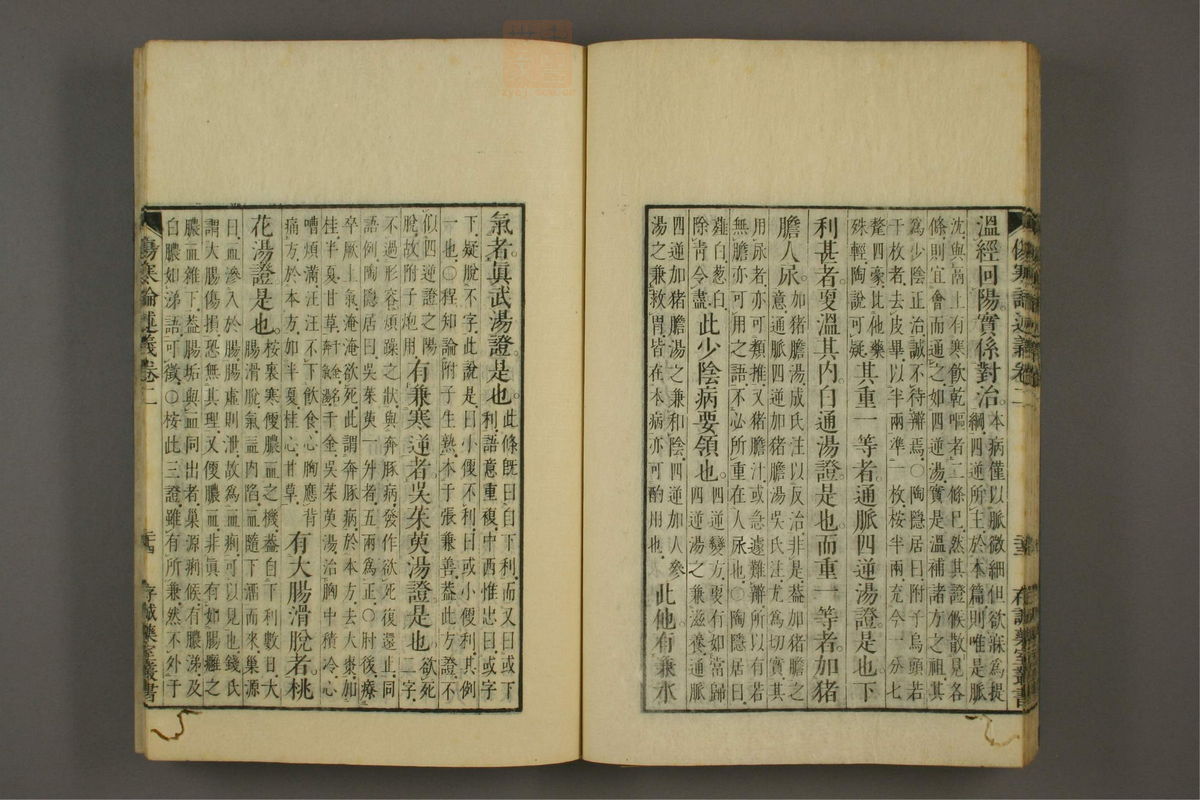 傷寒論述義卷二 二十三 存誠藥室叢書
溫經回陽。實係對治。本病僅以脈微細但欲寐為提
綱四逆所主於本篇則唯是脈
沈與膈上有寒飲乾嘔者二條巳然其證候散見各
條則宜會而通之如四逆湯實是溫補諸方之祖其
為少陰正治誠不待辯焉○陶隱居曰附子烏頭若
干枚者去皮畢以半兩準一枚桉半兩充今一分七
釐四豪比他藥
殊輕陶說可疑 其重一等者。通脈四逆湯證是也。下
利甚者。更溫其內。白通湯證是也。而重一等者。加豬
膽人尿。加豬膽湯成氏注以反治非是葢加豬膽之
意通脈四逆加豬膽湯吳氏注尤為切實其
用尿者亦可類推又豬膽汁或急遽難辦所以有若
無膽亦可用之語不必所重在人尿也○陶隱居曰
薤白葱白
除青令盡 此少陰病要領也。四逆變方更有如當歸
四逆湯之兼滋養通脈
四逆加猪膽湯之兼和陰四逆加人參
湯之兼救胃皆在本病亦可酌用也 此他有兼水
氣者。真武湯證是也。此條既曰自下利而又曰或下
利語意重複中西惟忠曰或字
下疑脫不字此說是曰小便不利曰或小便利其例
一也○程知論附子生熟本于張兼善葢此方證不
似四逆證之陽
脫故附子炮用 有兼寒逆者。吳茱萸湯證是也。欲死
二字
不過形容煩躁之狀與奔豚病發作欲死復還止同
語例陶隱居曰吳茱萸一升者五兩為正○肘後療
卒厥上氣淹淹欲死此謂奔豚病於本方去大棗加
桂半夏甘草 千金吳茱萸湯治胸中積冷心
嘈煩滿汪汪不下飲食心胸應背
痛方於本方加半夏桂心甘草 有大腸滑脫者。桃
花湯證是也。桉裏寒便膿血之機葢自下利數日大
腸滑脫氣益內陷血隨下濡而來巢源
曰血滲入於腸腸虛則泄故為血痢可以見也錢氏
謂大腸傷損恐無其理又便膿血非真有如腸癰之
膿血雜下葢腸垢與血同出者巢源痢候有膿涕及
白膿如涕語可徵○桉此三證雖有所兼然不外于
傷寒論述義卷二 二十四 存誠藥室叢書